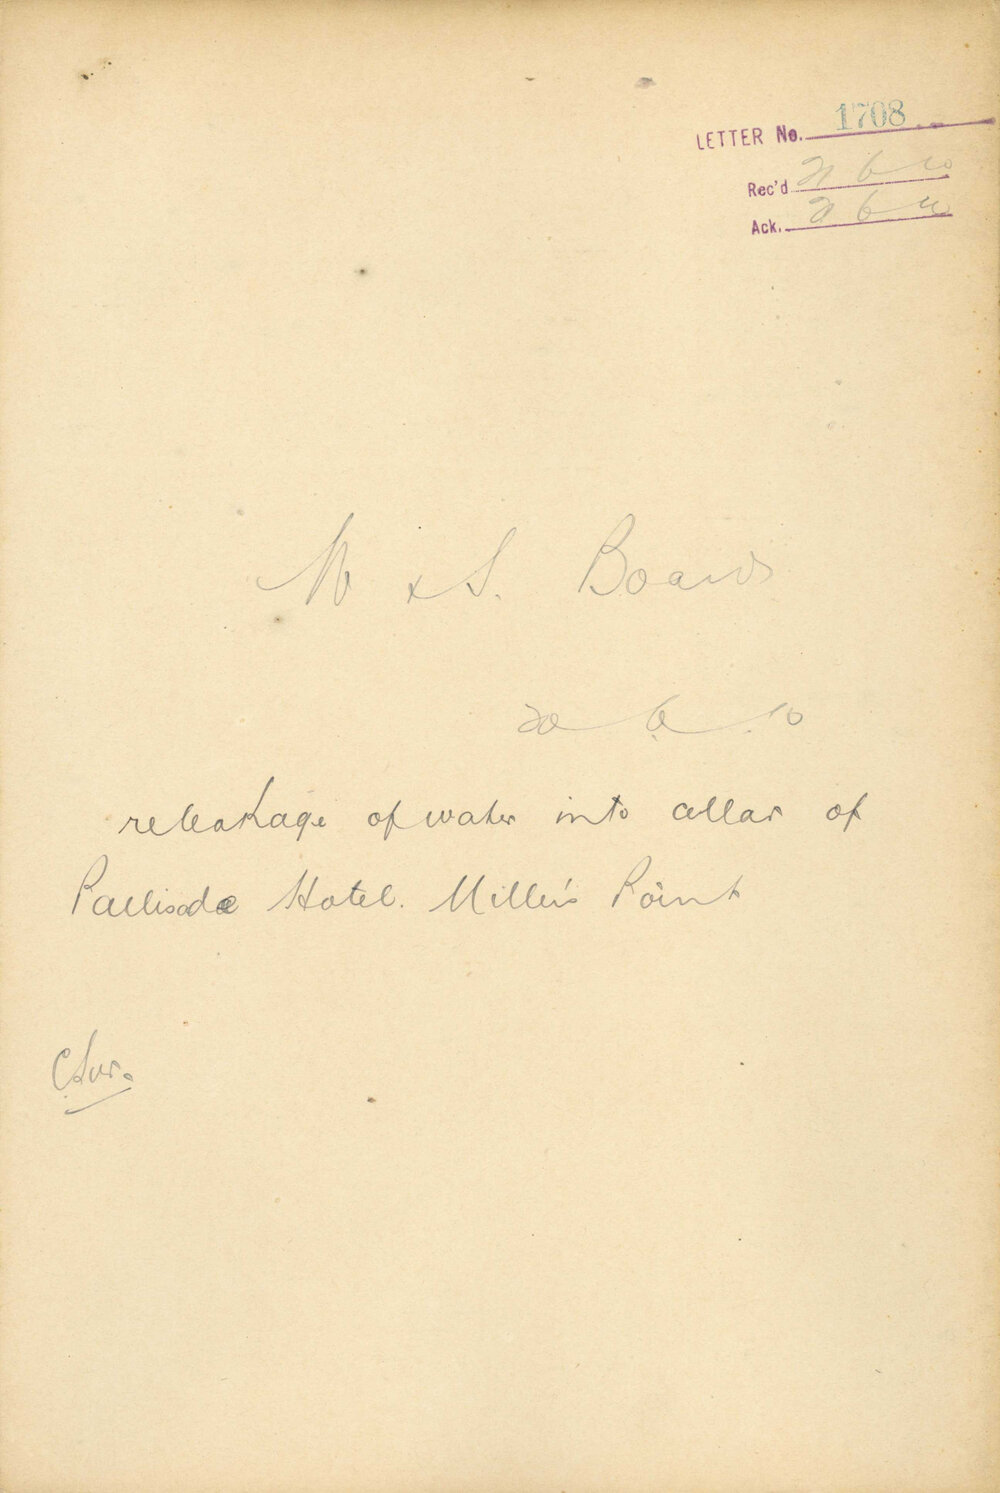 LETTER No. 1708
Rec'd 21 6 10
Ack. 21 6 10
W & S. Board
20 6 10
re leakage of water into cellar of
Pallisade Hotel. Miller's Point